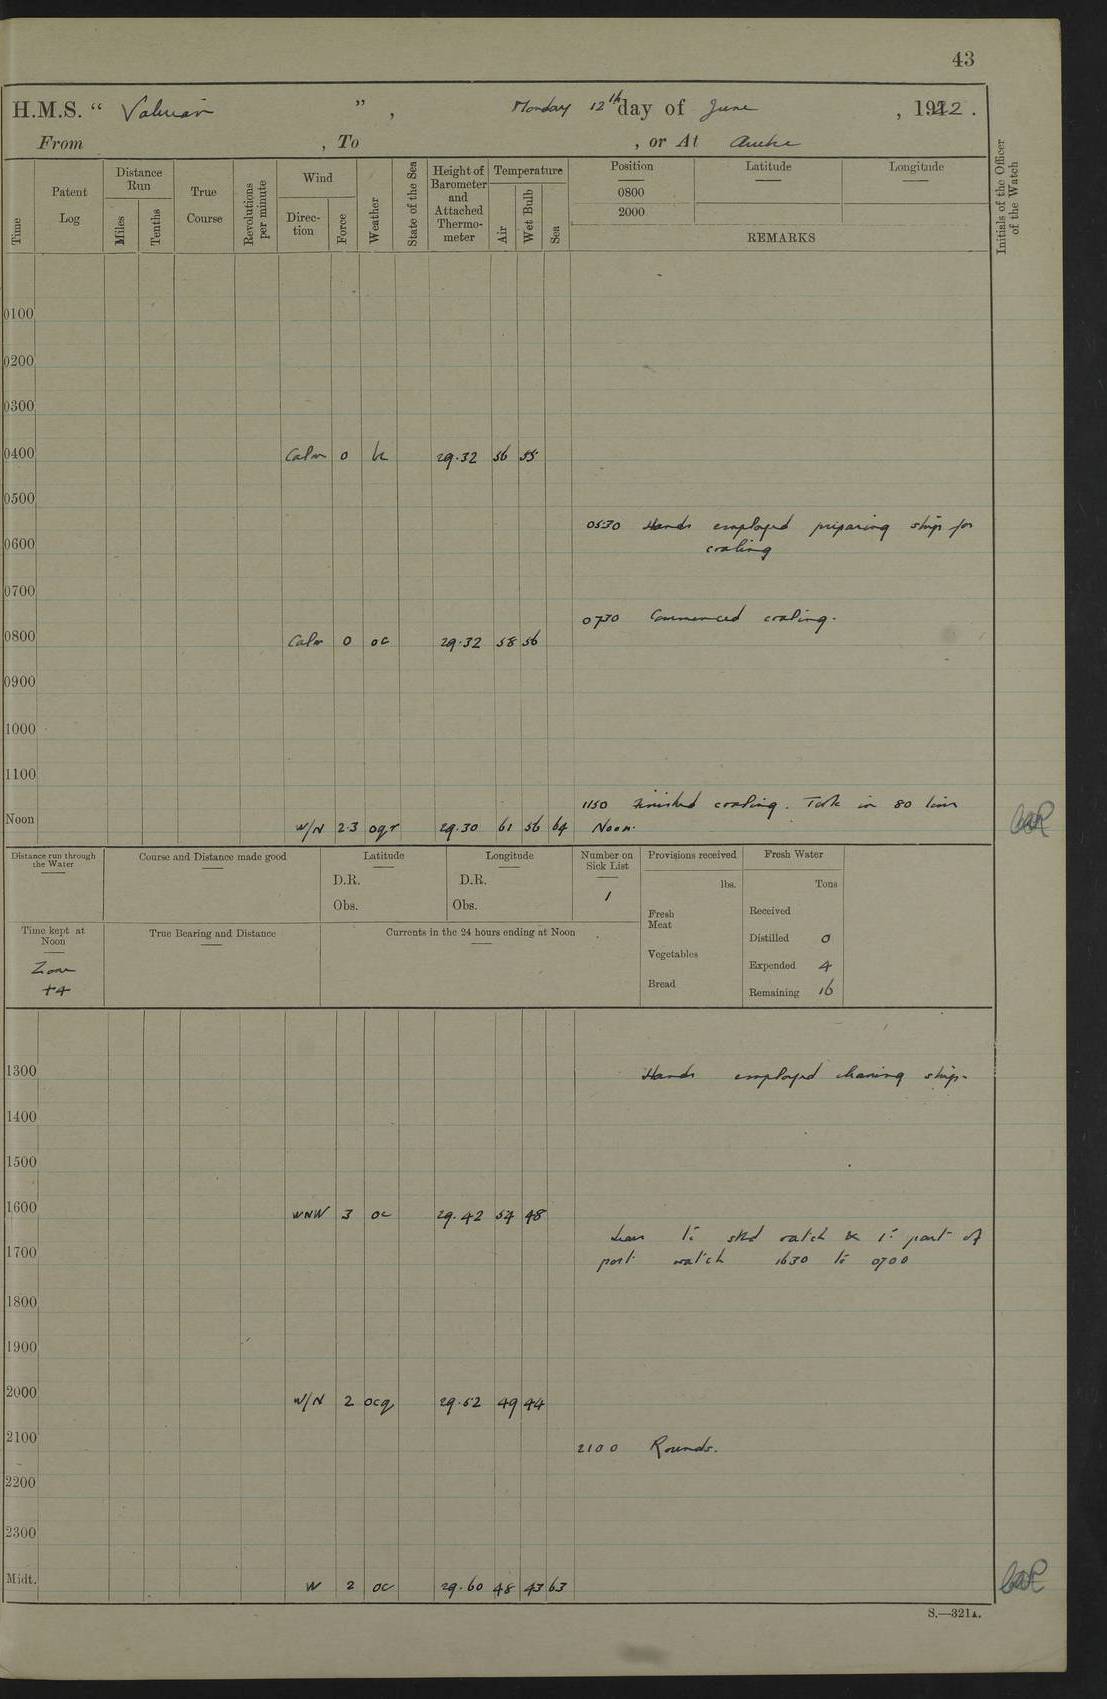 43
H.M.S. “ Valerian ” , Monday 12th day of June , 1922 .
From , To , or At
Time Patent Log Distance Run Miles Tenths True Course Revolutions per minute Wind Direction Force Weather State of the Sea Height of Barometer and Attached Thermometer Temperature Air Wet Bulb Sea Position 0800 2000 Latitude Longitude REMARKS Initials of the Officer of the Watch
0100
0200
0300
0400 Calm 0 bc 29.32 56 55
0500
0530 Hands employed preparing ship for
0600 coaling
0700
0730 Commenced coaling.
0800 Calm 0 oc 29.32 58 56
0900
1000
1100
1150 Finished coaling. Took in 80 tons
Noon W/N 2.3 oqr 29.30 61 56 64 Noon.
Distance run through the Water Course and Distance made good Latitude Longitude Number on Sick List Provisions received Fresh Water
D.R. D.R. 1 lbs. Tons
Obs. Obs. Fresh Meat Received
Time kept at Noon True Bearing and Distance Currents in the 24 hours ending at Noon Distilled 0
Vegetables
Zone Expended 4
+4 Bread Remaining 16
1300 Hands employed cleaning ship.
1400
1500
1600 WNW 3 oc 29.42 54 48
Leave to stbd watch & 1st part of
1700 port watch 1630 to 0700
1800
1900
2000 W/N 2 ocq 29.52 49 44
2100 2100 Rounds.
2200
2300
Midt. W 2 oc 29.60 48 43 63
S.—321A.